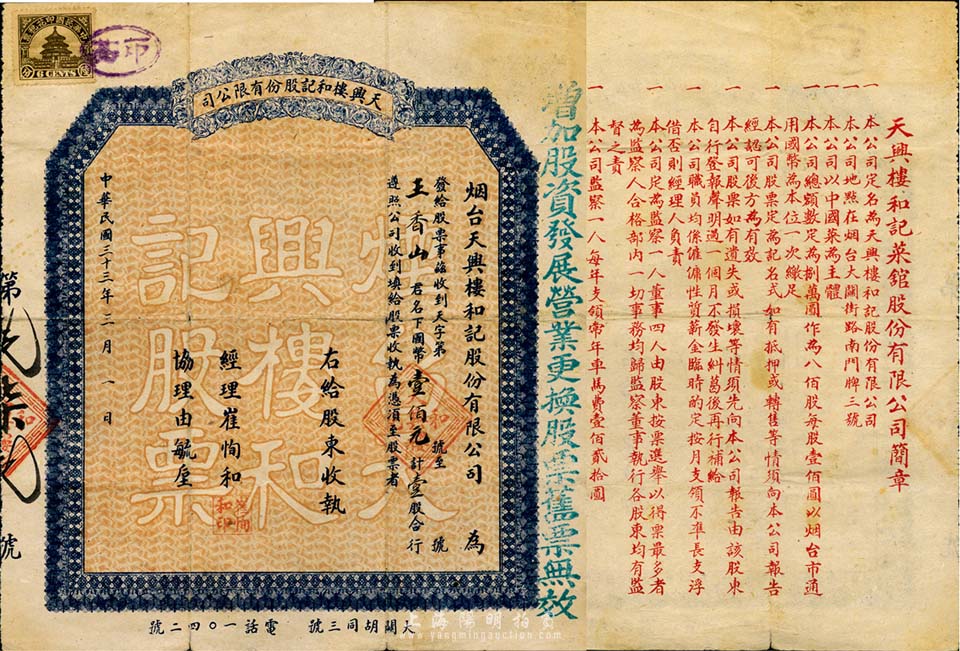 天興樓和記菜舘股份有限公司簡章
一 本公司定名為天興樓和記股份有限公司
一 本公司地點在烟台大關街路南門牌三號
一 本公司以中國菜為主體
一 本公司總額數定為捌萬圓作為八佰股每股壹佰圓以烟台市通
用國幣為本位一次繳足
一 本公司股票定為記名式如有抵押或轉售等情須向本公司報告
經認可後方為有效
一 本公司股票如有遺失或損壞等情須先向本公司報告由該股東
自行登報聲明過一個月不發生糾葛後再行補給
一 本公司職員均係僱傭性質薪金臨時的定按月支領不準長支浮
借否則經理人負責
一 本公司定為監察一人董事四人由股東按票選舉以得票最多者
為監察人合格部內一切事務均歸監察董事執行各股東均有監
督之責
一 本公司監察一人每年支領常年車馬費壹佰貳拾圓
增加股資發展營業更換股票舊票無效
天興樓和記股份有限公司
烟台天興樓和記股份有限公司 為
發給股票事茲收到天字第 號至 號
王香山君名下國幣壹佰元計壹股合行
遵照公司收到填給股票收執為憑須至股票者
右給股東收執
經理崔恂和
協理由毓垕
中華民國三十三年二月一日
烟台天
興樓和
記股票
崔恂
和印
第
號
大關胡同三號 電話一〇四二號
6 CENTS
上海陽明拍賣
www.yangmingauction.com